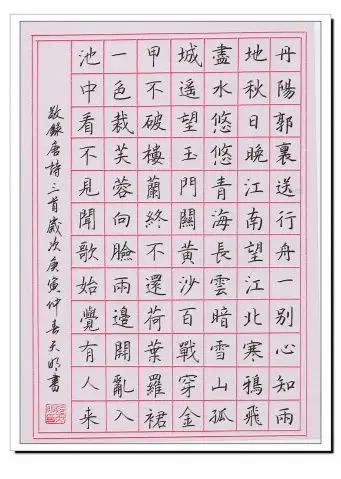 丹陽郭裏送行舟一別心知兩
地秋日晚江南望江北寒鴉飛
盡水悠悠青海長雲暗雪山孤
城遥望玉門關黄沙百戰穿金
甲不破樓蘭終不還荷葉羅裙
一色裁芙蓉向臉兩邊開亂入
池中看不見聞歌始覺有人来
敬録唐詩三首歲次庚寅仲春天明書